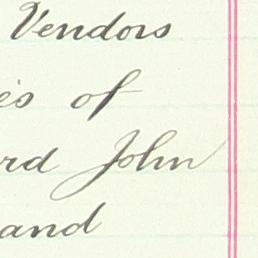 Vendors
es of
rd John
and